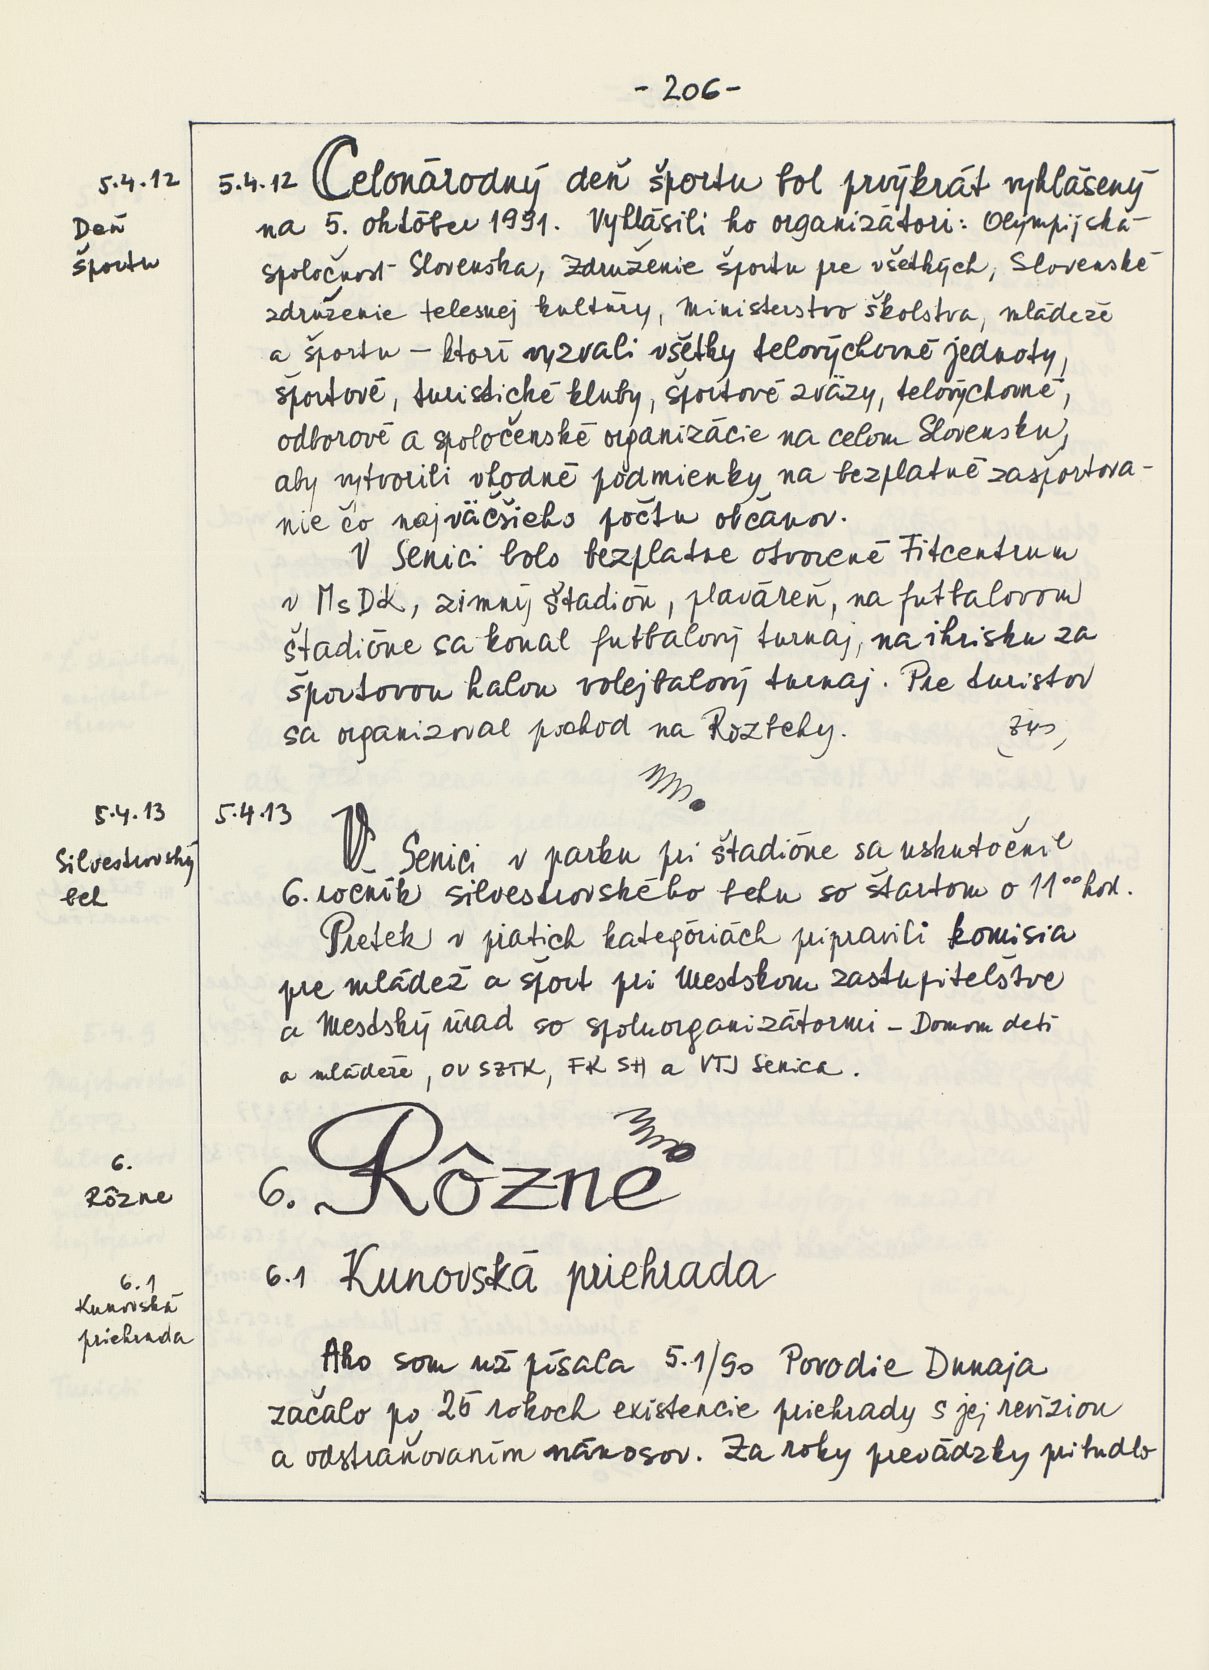 - 206 -
5.4.12
Deň
športu
5.4.12 Celonárodný deň športu bol prvýkrát vyhlásený
na 5. október 1991. Vyhlásili ho organizátori: Olympijská
spoločnosť Slovenska, Združenie športu pre všetkých, Slovenské
združenie telesnej kultúry, Ministerstvo školstva, mládeže
a športu – ktorí vyzvali všetky telovýchovné jednoty,
športové, turistické kluby, športové zväzy, telovýchovné,
odborové a spoločenské organizácie na celom Slovensku,
aby vytvorili vhodné podmienky na bezplatné zašportova-
nie čo najväčšieho počtu občanov.
V Senici bolo bezplatne otvorené Fitcentrum
v MsDK, zimný štadión, plaváreň, na futbalovom
štadióne sa konal futbalový turnaj, na ihrisku za
športovou halou volejbalový turnaj. Pre turistov
sa organizoval pochod na Rozbehy.
5.4.13
Silvestrovský
beh
5.4.13 V Senici v parku pri štadióne sa uskutočnil
6. ročník silvestrovského behu so štartom o 11ºº hod.
Pretek v piatich kategóriách pripravili komisia
pre mládež a šport pri Mestskom zastupiteľstve
a Mestský úrad so spoluorganizátormi – Domom detí
a mládeže, OV SZTK, FK SH a VTJ Senica.
6.
Rôzne
6. Rôzne
6.1
Kunovská
priehrada
6.1 Kunovská priehrada
Ako som už písala 5.1/90 Povodie Dunaja
začalo po 25 rokoch existencie priehrady s jej revíziou
a odstraňovaním nánosov. Za roky prevádzky pritudlo